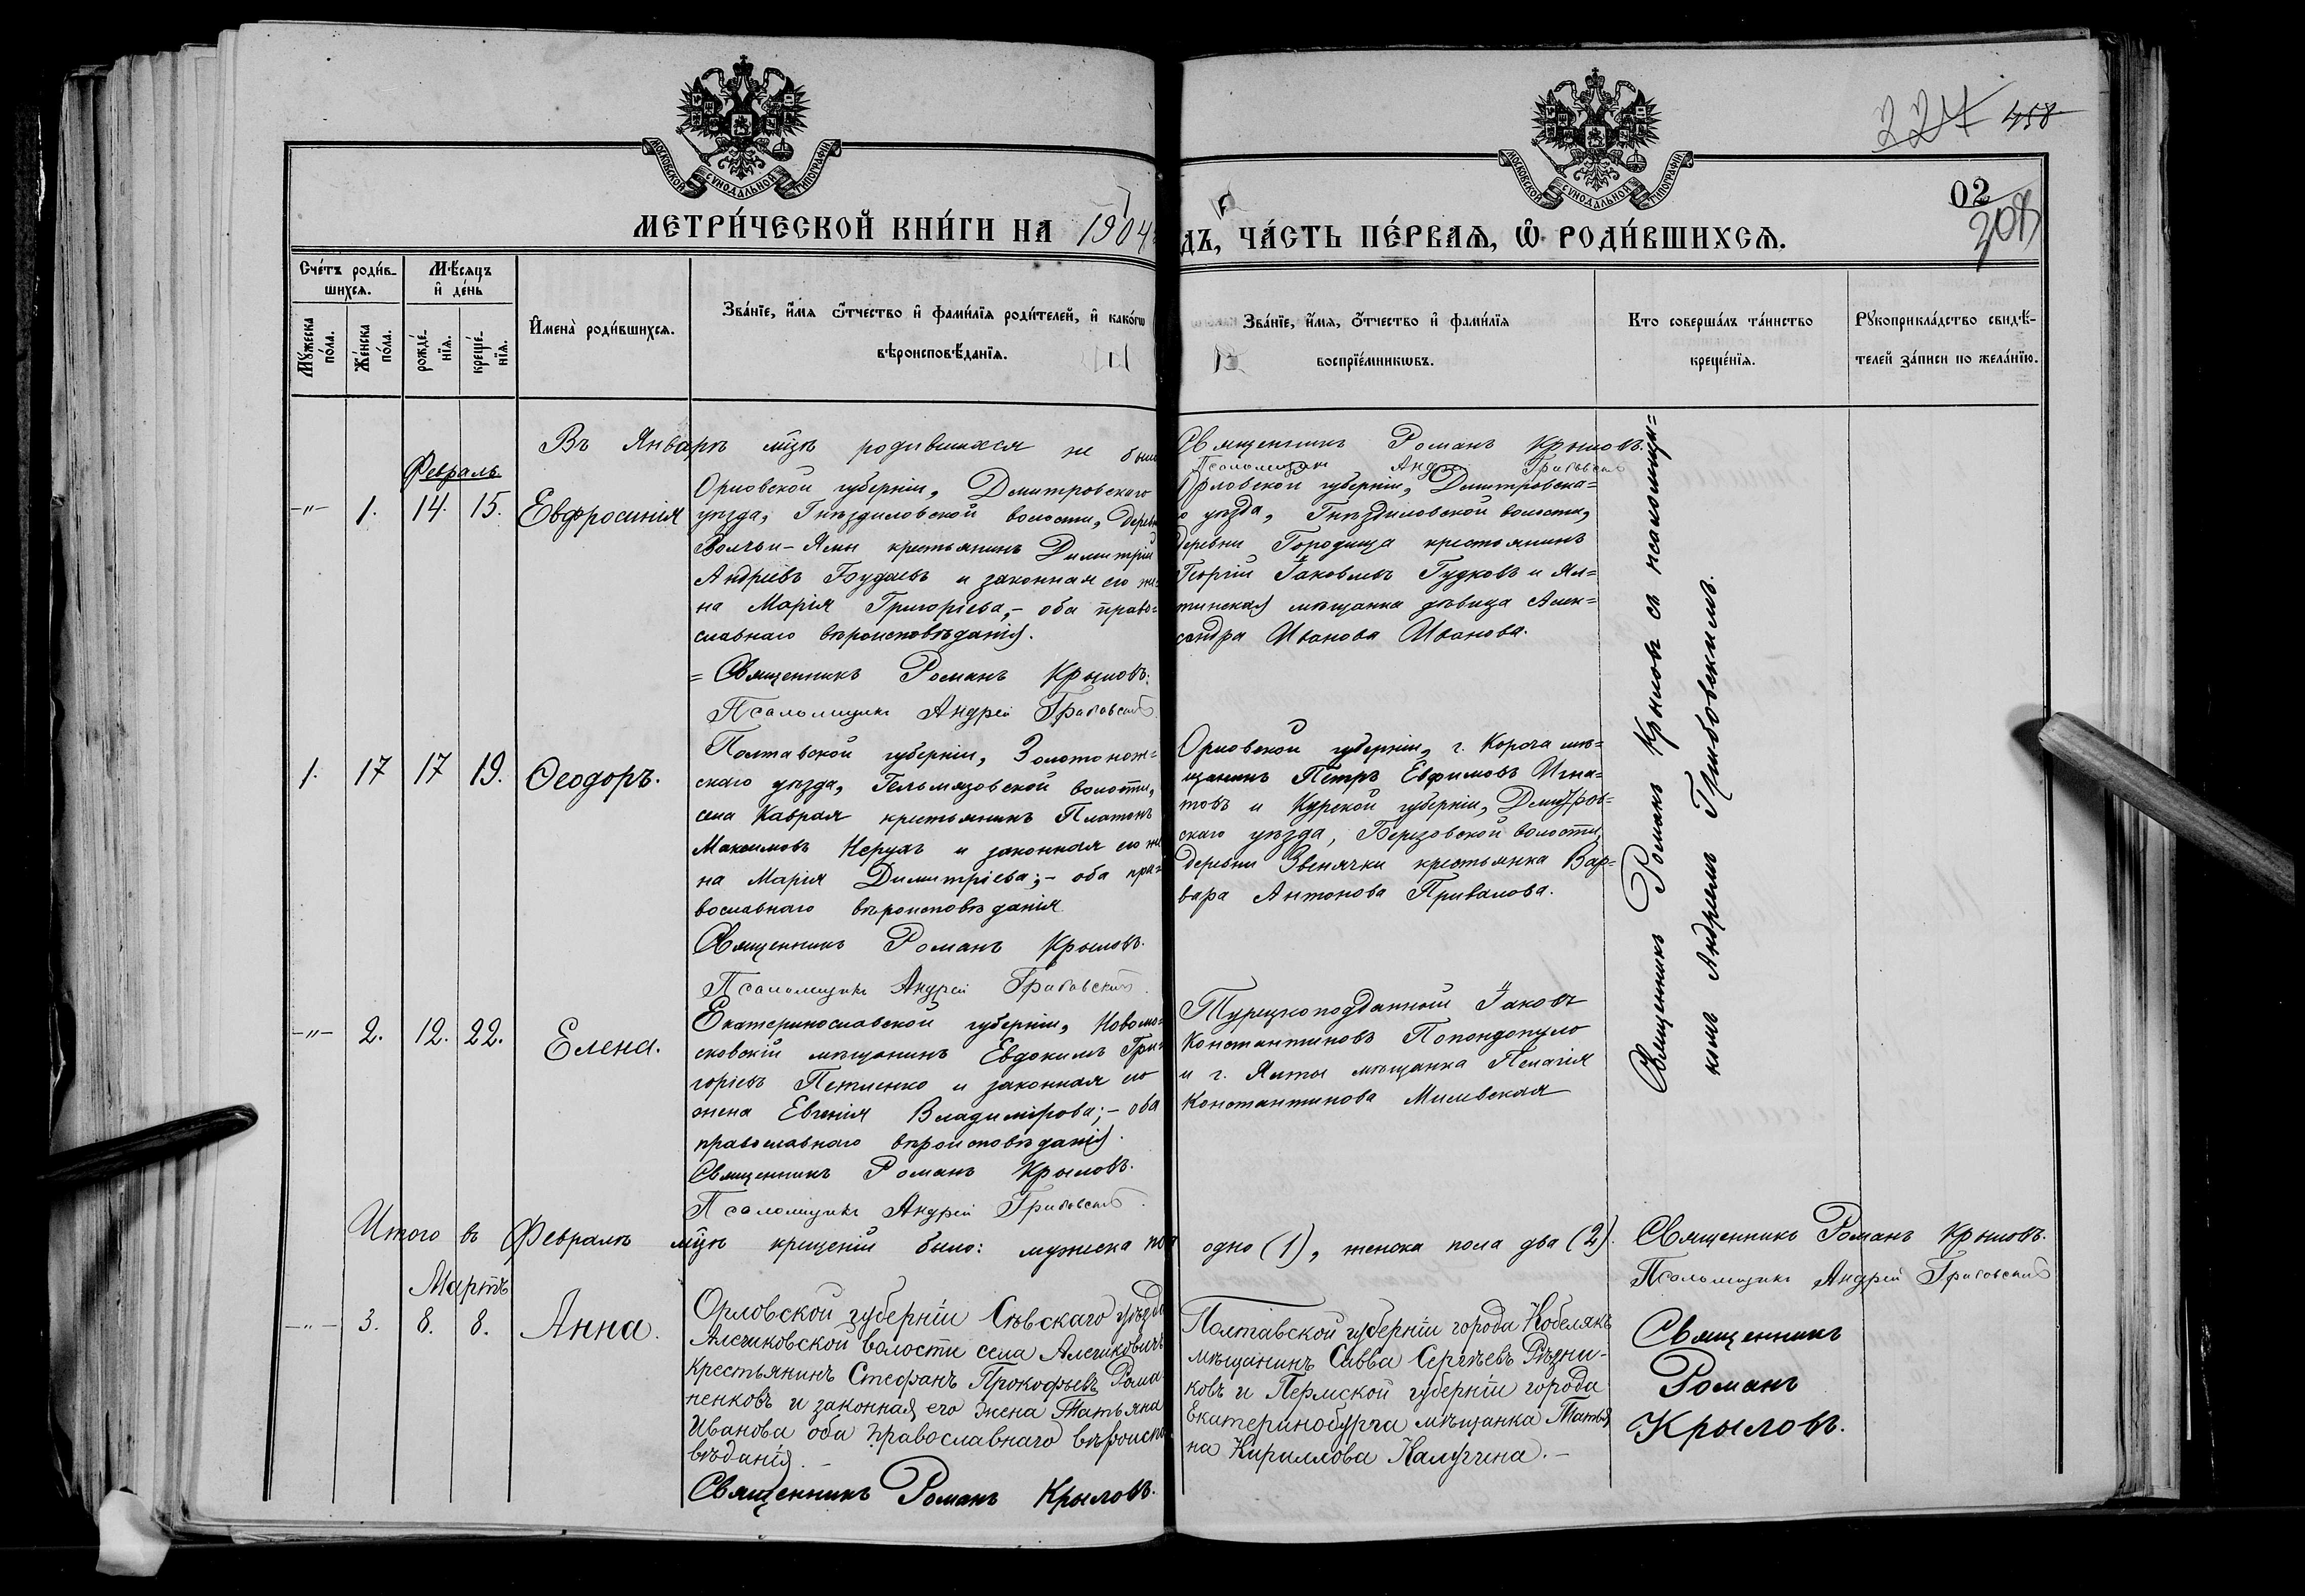 227 458
02
208
МОСКОВСКОЙ СУНОДАЛЬНОЙ ТИПОГРАФІИ
МОСКОВСКОЙ СУНОДАЛЬНОЙ ТИПОГРАФІИ
МЕТРИ́ЧЕСКОЙ КНИ́ГИ НА 1904 ГОДЪ, ЧА́СТЬ ПЕ́РВАѦ, Ѽ РОДИ́ВШИХСѦ.
Сче́тъ роди́в-
шихсѧ.
Мꙋ́жеска по́ла.
Же́нска по́ла.
Мѣ́сѧцъ
и҆ де́нь
рожде́-нїѧ.
креще́-нїѧ.
И҆мена̀ роди́вшихсѧ.
Зва́нїе, и҆́мѧ ѻ҆́тчество и҆ фами́лїѧ роди́телей, и҆ како́гѡ
вѣроисповѣ́данїѧ.
Зва́нїе, и҆́мѧ, ѻ҆́тчество и҆ фами́лїѧ
воспрїе́мникѡвъ.
Кто соверша́лъ та́инство
креще́нїѧ.
Рꙋкоприкла́дство свидѣ́-
телей за́писи по жела́нїю.
Въ Январѣ мцѣ родившихся не было
Священникъ Романъ Крыловъ.
Псаломщикъ Андрей Грибовскій
Февраль
-"- 1. 14. 15. Евфросинія
Орловской губерніи, Дмитровскаго
уѣзда, Гнѣздиловской волости, деревни
Волчьи-Ямы крестьянинъ Димитрій
Андреевъ Будаевъ и законная его же-
на Марія Григоріева,- оба право-
славнаго вѣроисповѣданія.
= Священникъ Романъ Крыловъ.
Псаломщикъ Андрей Грибовскій
Орловской губерніи, Дмитровска-
го уѣзда, Гнѣздиловской волости,
деревни Городища крестьянинъ
Георгій Іаковлевъ Гудковъ и Ял-
тинская мѣщанка дѣвица Алек-
сандра Иванова Иванова.
Священникъ Романъ Крыловъ съ псаломщи-
комъ Андреемъ Грибовскимъ.
1. 17 17 19. Ѳеодоръ.
Полтавской губерніи, Золотонож-
скаго уѣзда, Гельмязовской волости,
села Каврая крестьянинъ Платонъ
Максимовъ Неруха и законная его же
на Марія Димитріева;- оба пра-
вославнаго вѣроисповѣданія
Священникъ Романъ Крыловъ.
Псаломщикъ Андрей Грибовскій.
Орловской губерніи, г. Короча мѣ-
щанинъ Петръ Евфимовъ Игна-
товъ и Курской губерніи, Дмитров-
скаго уѣзда, Березовской волости,
деревни Звенячки крестьянка Вар-
вара Антонова Привалова.
-"- 2. 12. 22. Елена.
Екатеринославской губерніи, Новомо-
сковскій мѣщанинъ Евдокимъ Гри-
горіевъ Петленко и законная его
жена Евгенія Владимірова;- оба
православнаго вѣроисповѣданія.
Священникъ Романъ Крыловъ.
Псаломщикъ Андрей Грибовскій.
Турецкоподданный Іаковъ
Константиновъ Попондопуло
и г. Ялты мѣщанка Пелагія
Константинова Милевская
Итого въ Февралѣ мцѣ крещеній было: мужеска пола одно (1), женска пола два (2).
Священникъ Романъ Крыловъ.
Псаломщикъ Андрей Грибовскій
Мартъ
-"- 3. 8. 8. Анна.
Орловской губерніи Сѣвскаго уѣзда
Алешковской волости села Алешковичъ
крестьянинъ Стефанъ Прокофьевъ Рома
ненковъ и законная его жена Татьяна
Иванова оба православнаго вѣроиспо
вѣданія. -
Священникъ Романъ Крыловъ.
Полтавской губерніи города Кобелякъ
мѣщанинъ Савва Сергѣевъ Рѣзни-
ковъ и Пермской губерніи города
Екатеринобурга мѣщанка Татья
на Кириллова Калугина. -
Священникъ
Романъ
Крыловъ.